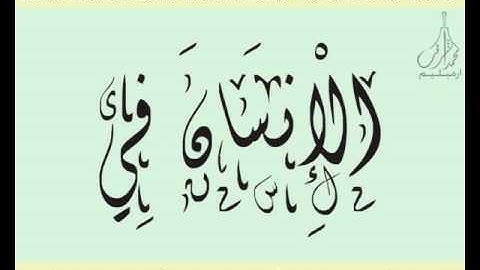 الْإِنسَانَ فِي